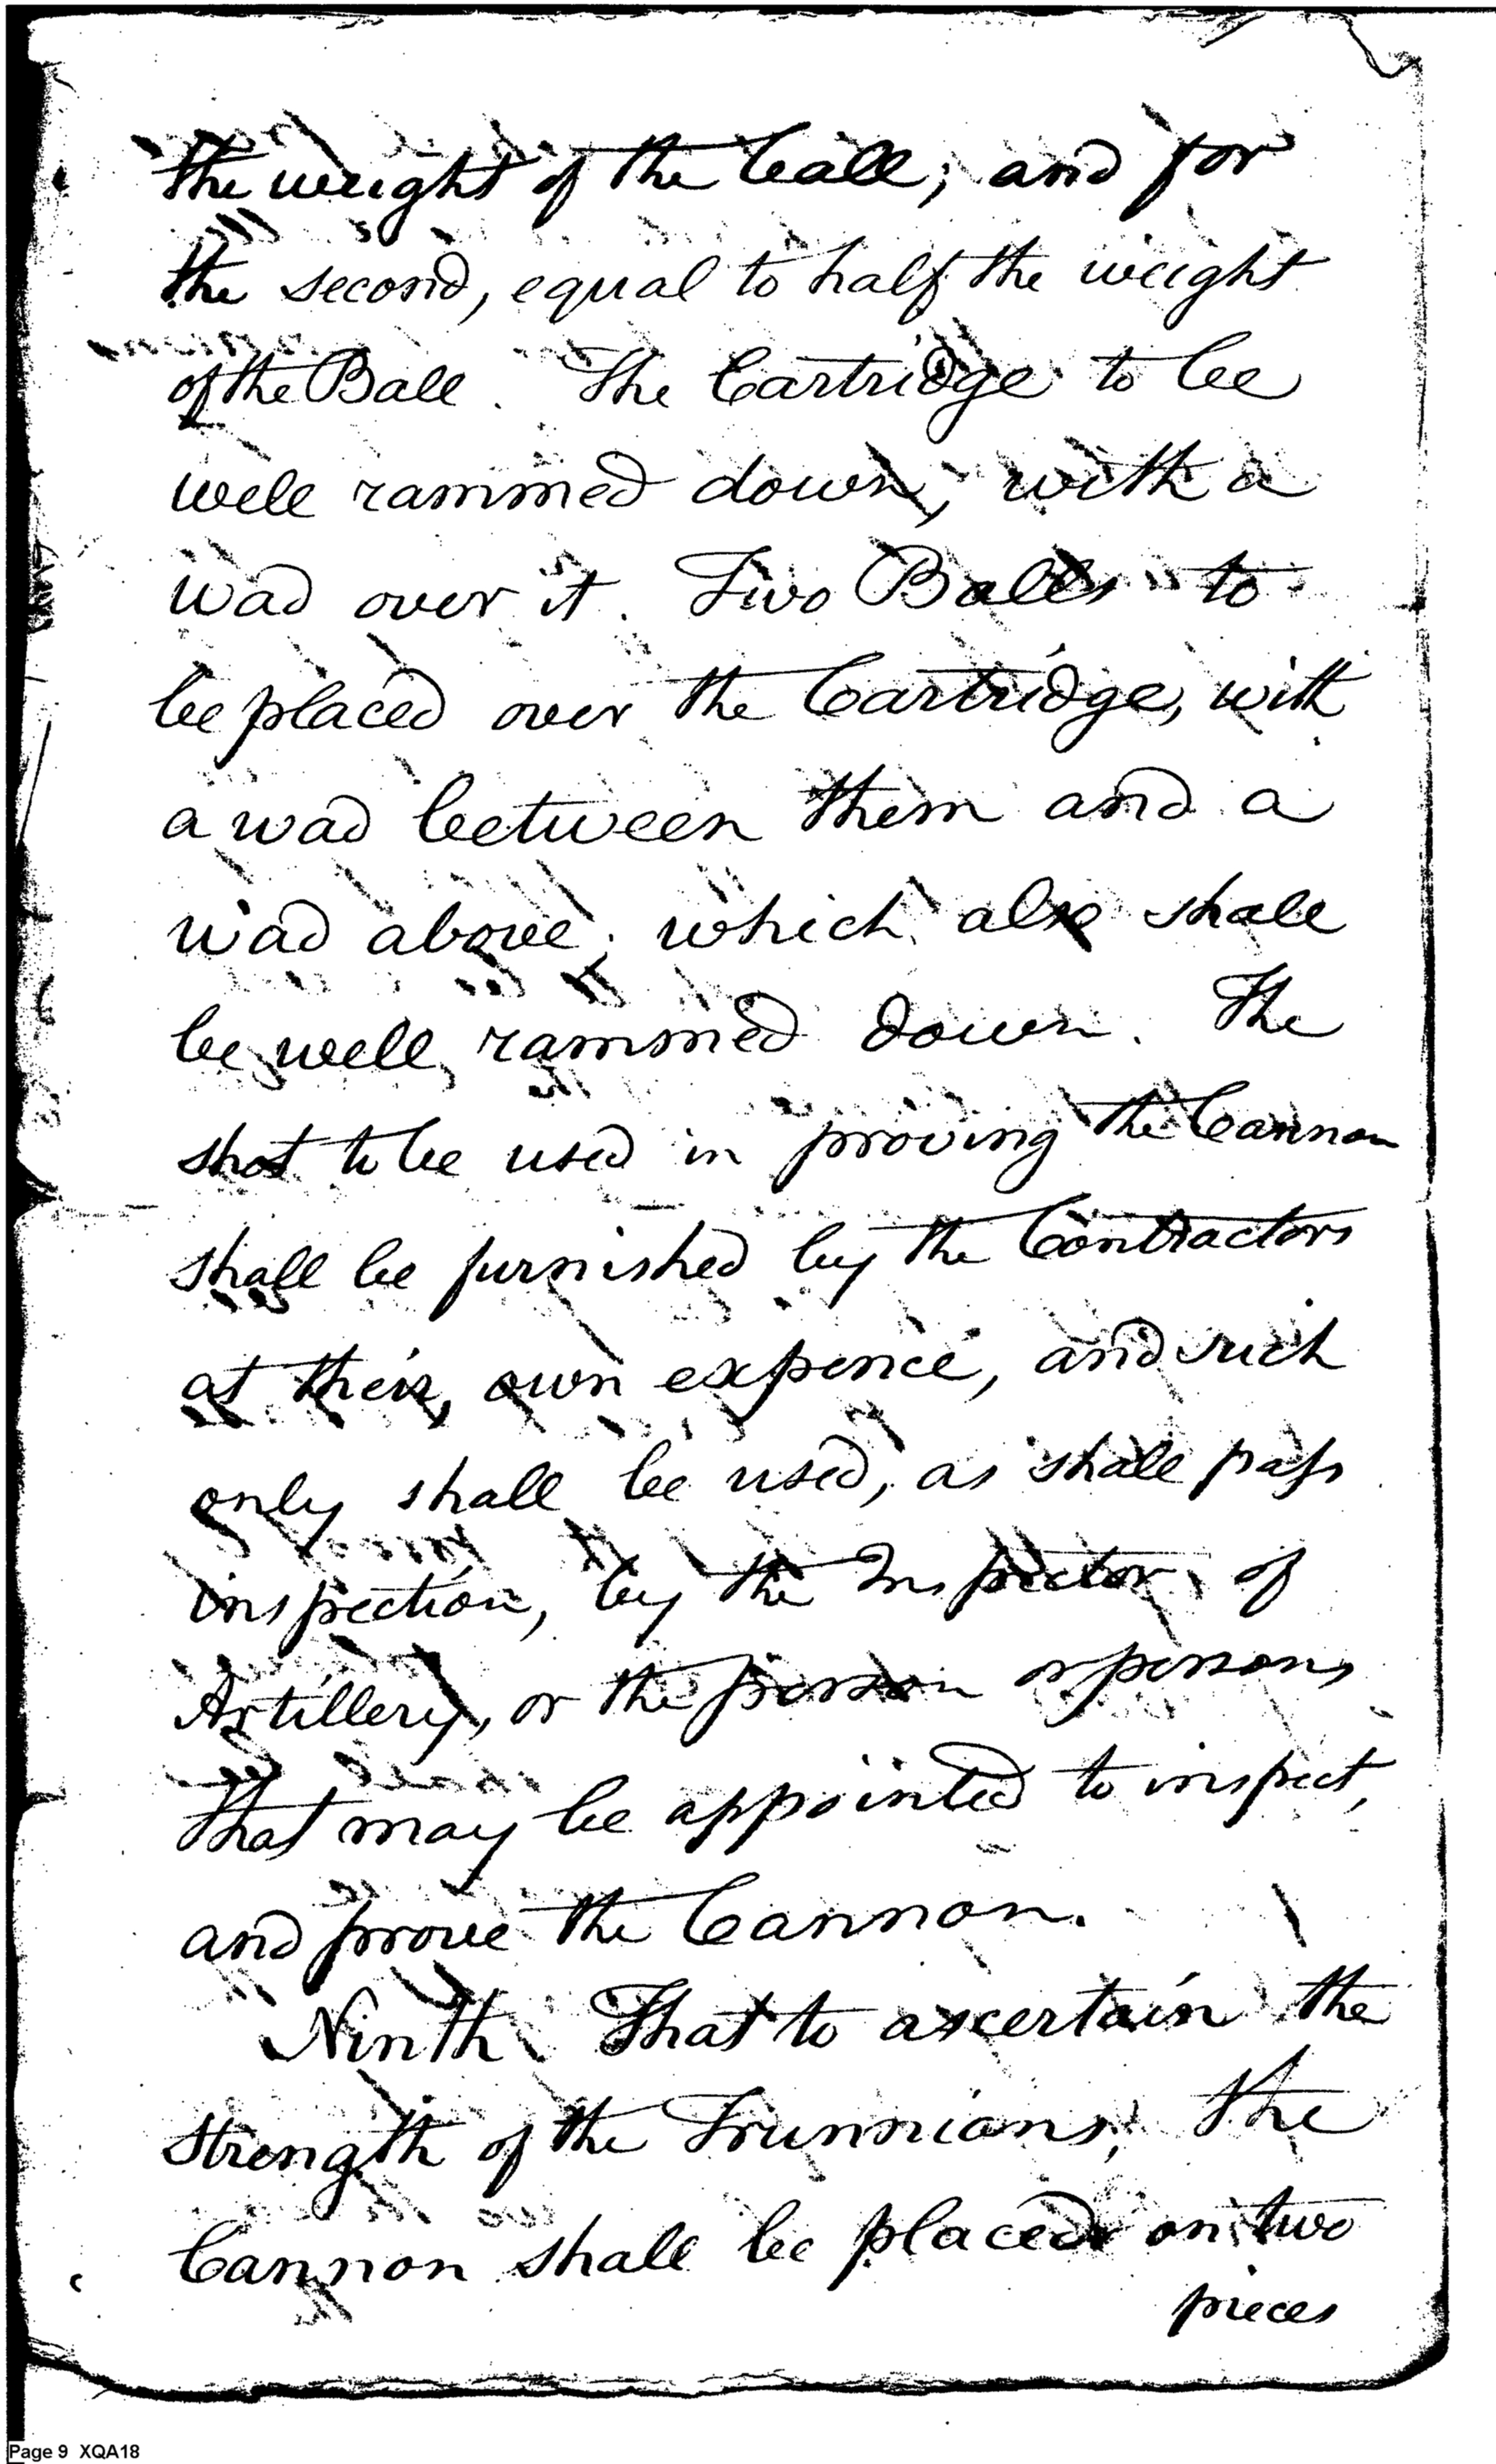 the weight of the ball; and for
the second, equal to half the weight
of the Ball. The Cartridge to be
well rammed down, with a
wad over it. Two Balls to
be placed over the Cartridge, with
a wad between them and a
wad above; which also shall
be well rammed down. The
shot to be used in proving the Cannon
shall be furnished by the Contractors
at their own expence, and such
only shall be used, as shall pass
inspection, by the Inspector of
Artillery, or the person or persons
that may be appointed to inspect,
and prove the Cannon.
Ninth. That to ascertain the
strength of the Trunnians, the
Cannon shall be placed on two
pieces
Page 9 XQA18